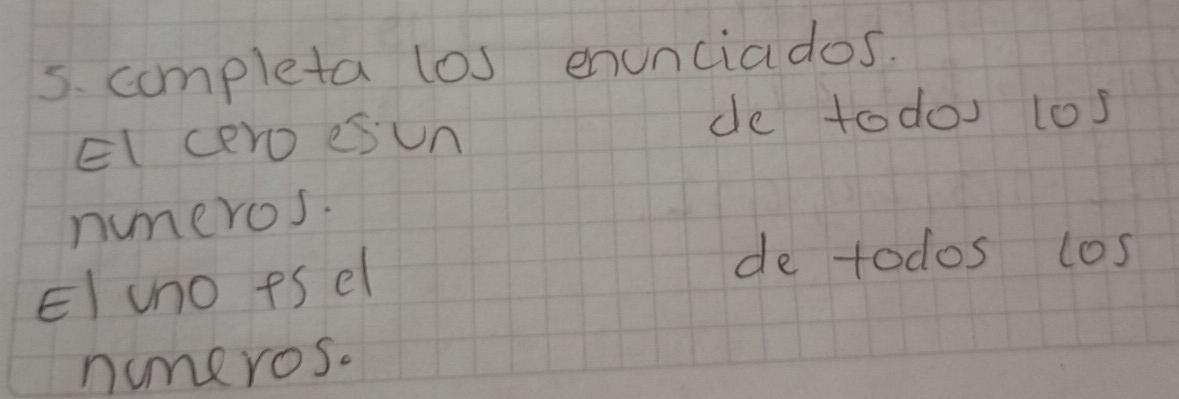 5. completa los enunciados.
El cero es un de todos los
numeros.
El uno es el de todos los
numeros.